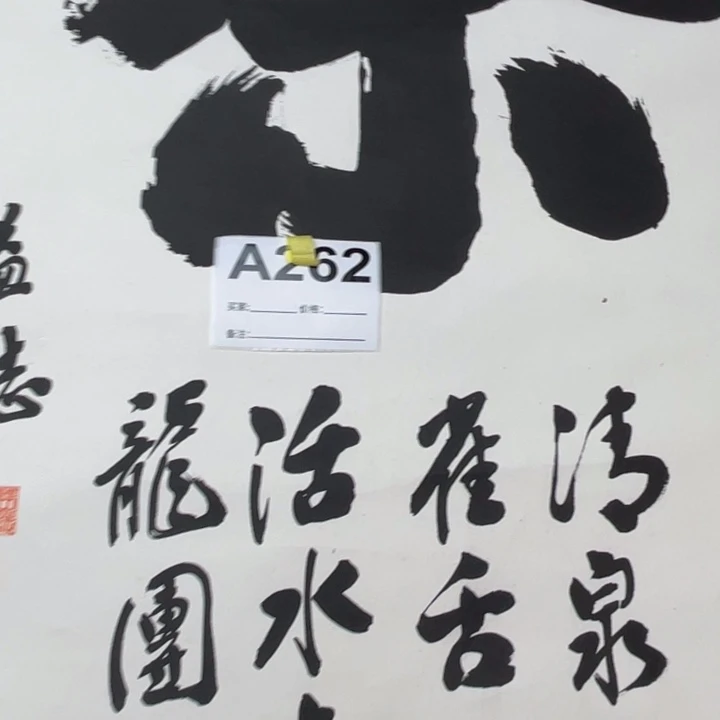 A262
买家:________ 价格:________
备注:________________
清泉
雀舌
活水
龍團